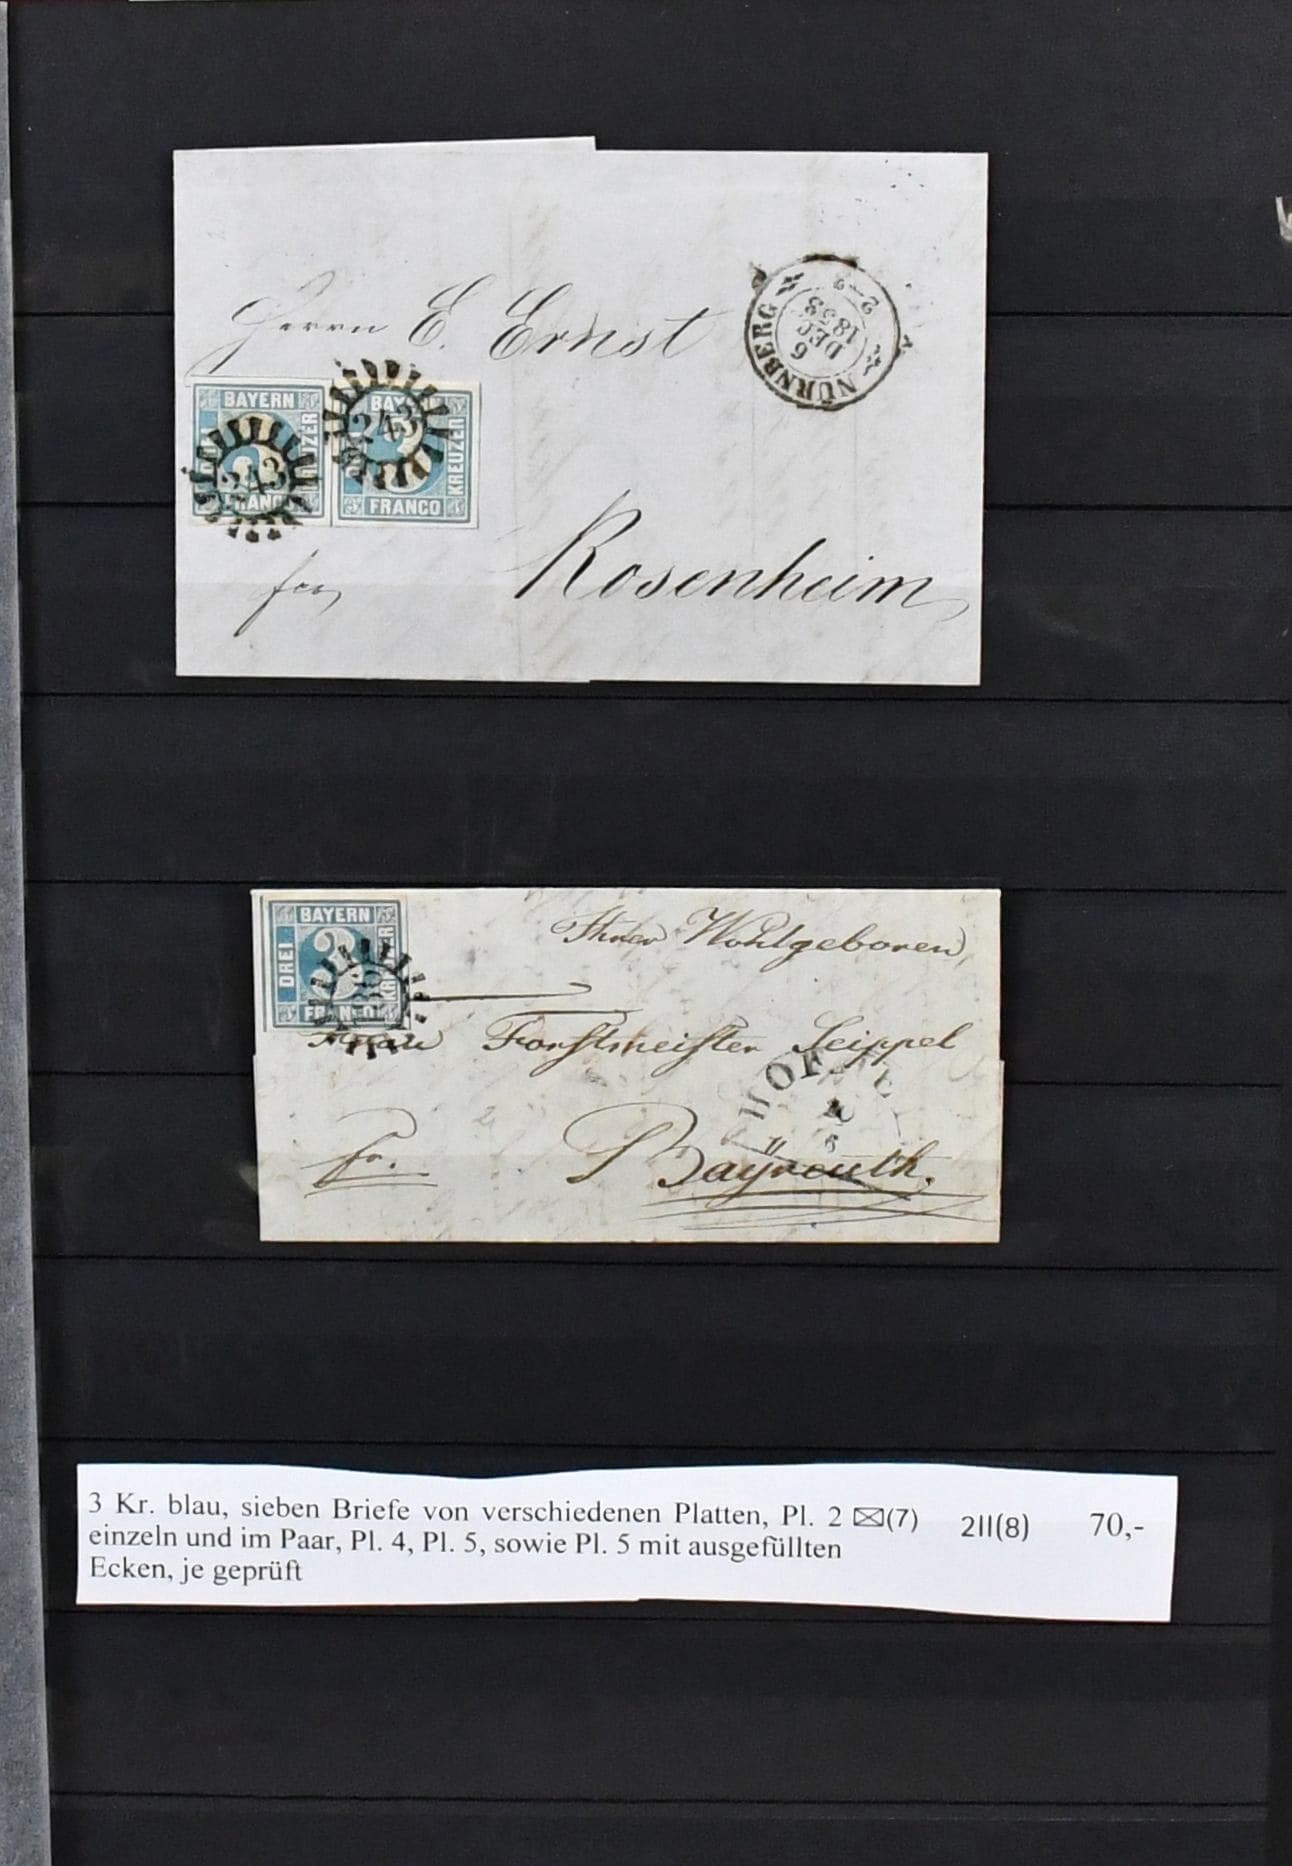 Herrn E. Ernst
NÜRNBERG
6
DEC
1853
2-
BAYERN
DREI
KREUZER
FRANCO
243
BAYERN
KREUZER
FRANCO
243
Rosenheim
BAYERN
DREI
FRANCO
Ihrer Wohlgeboren,
Frau Forstmeister Seippel
HOF
fr.
Bayreuth.
3 Kr. blau, sieben Briefe von verschiedenen Platten, Pl. 2 ✉(7) 2II(8) 70,-
einzeln und im Paar, Pl. 4, Pl. 5, sowie Pl. 5 mit ausgefüllten
Ecken, je geprüft